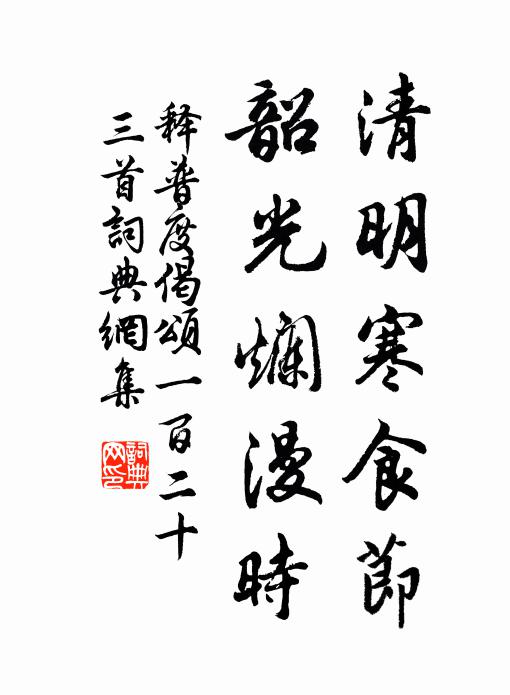 清明寒食節
韶光爛漫時
释普度偈頌一百二十
三首詞典網集
詞典
网印